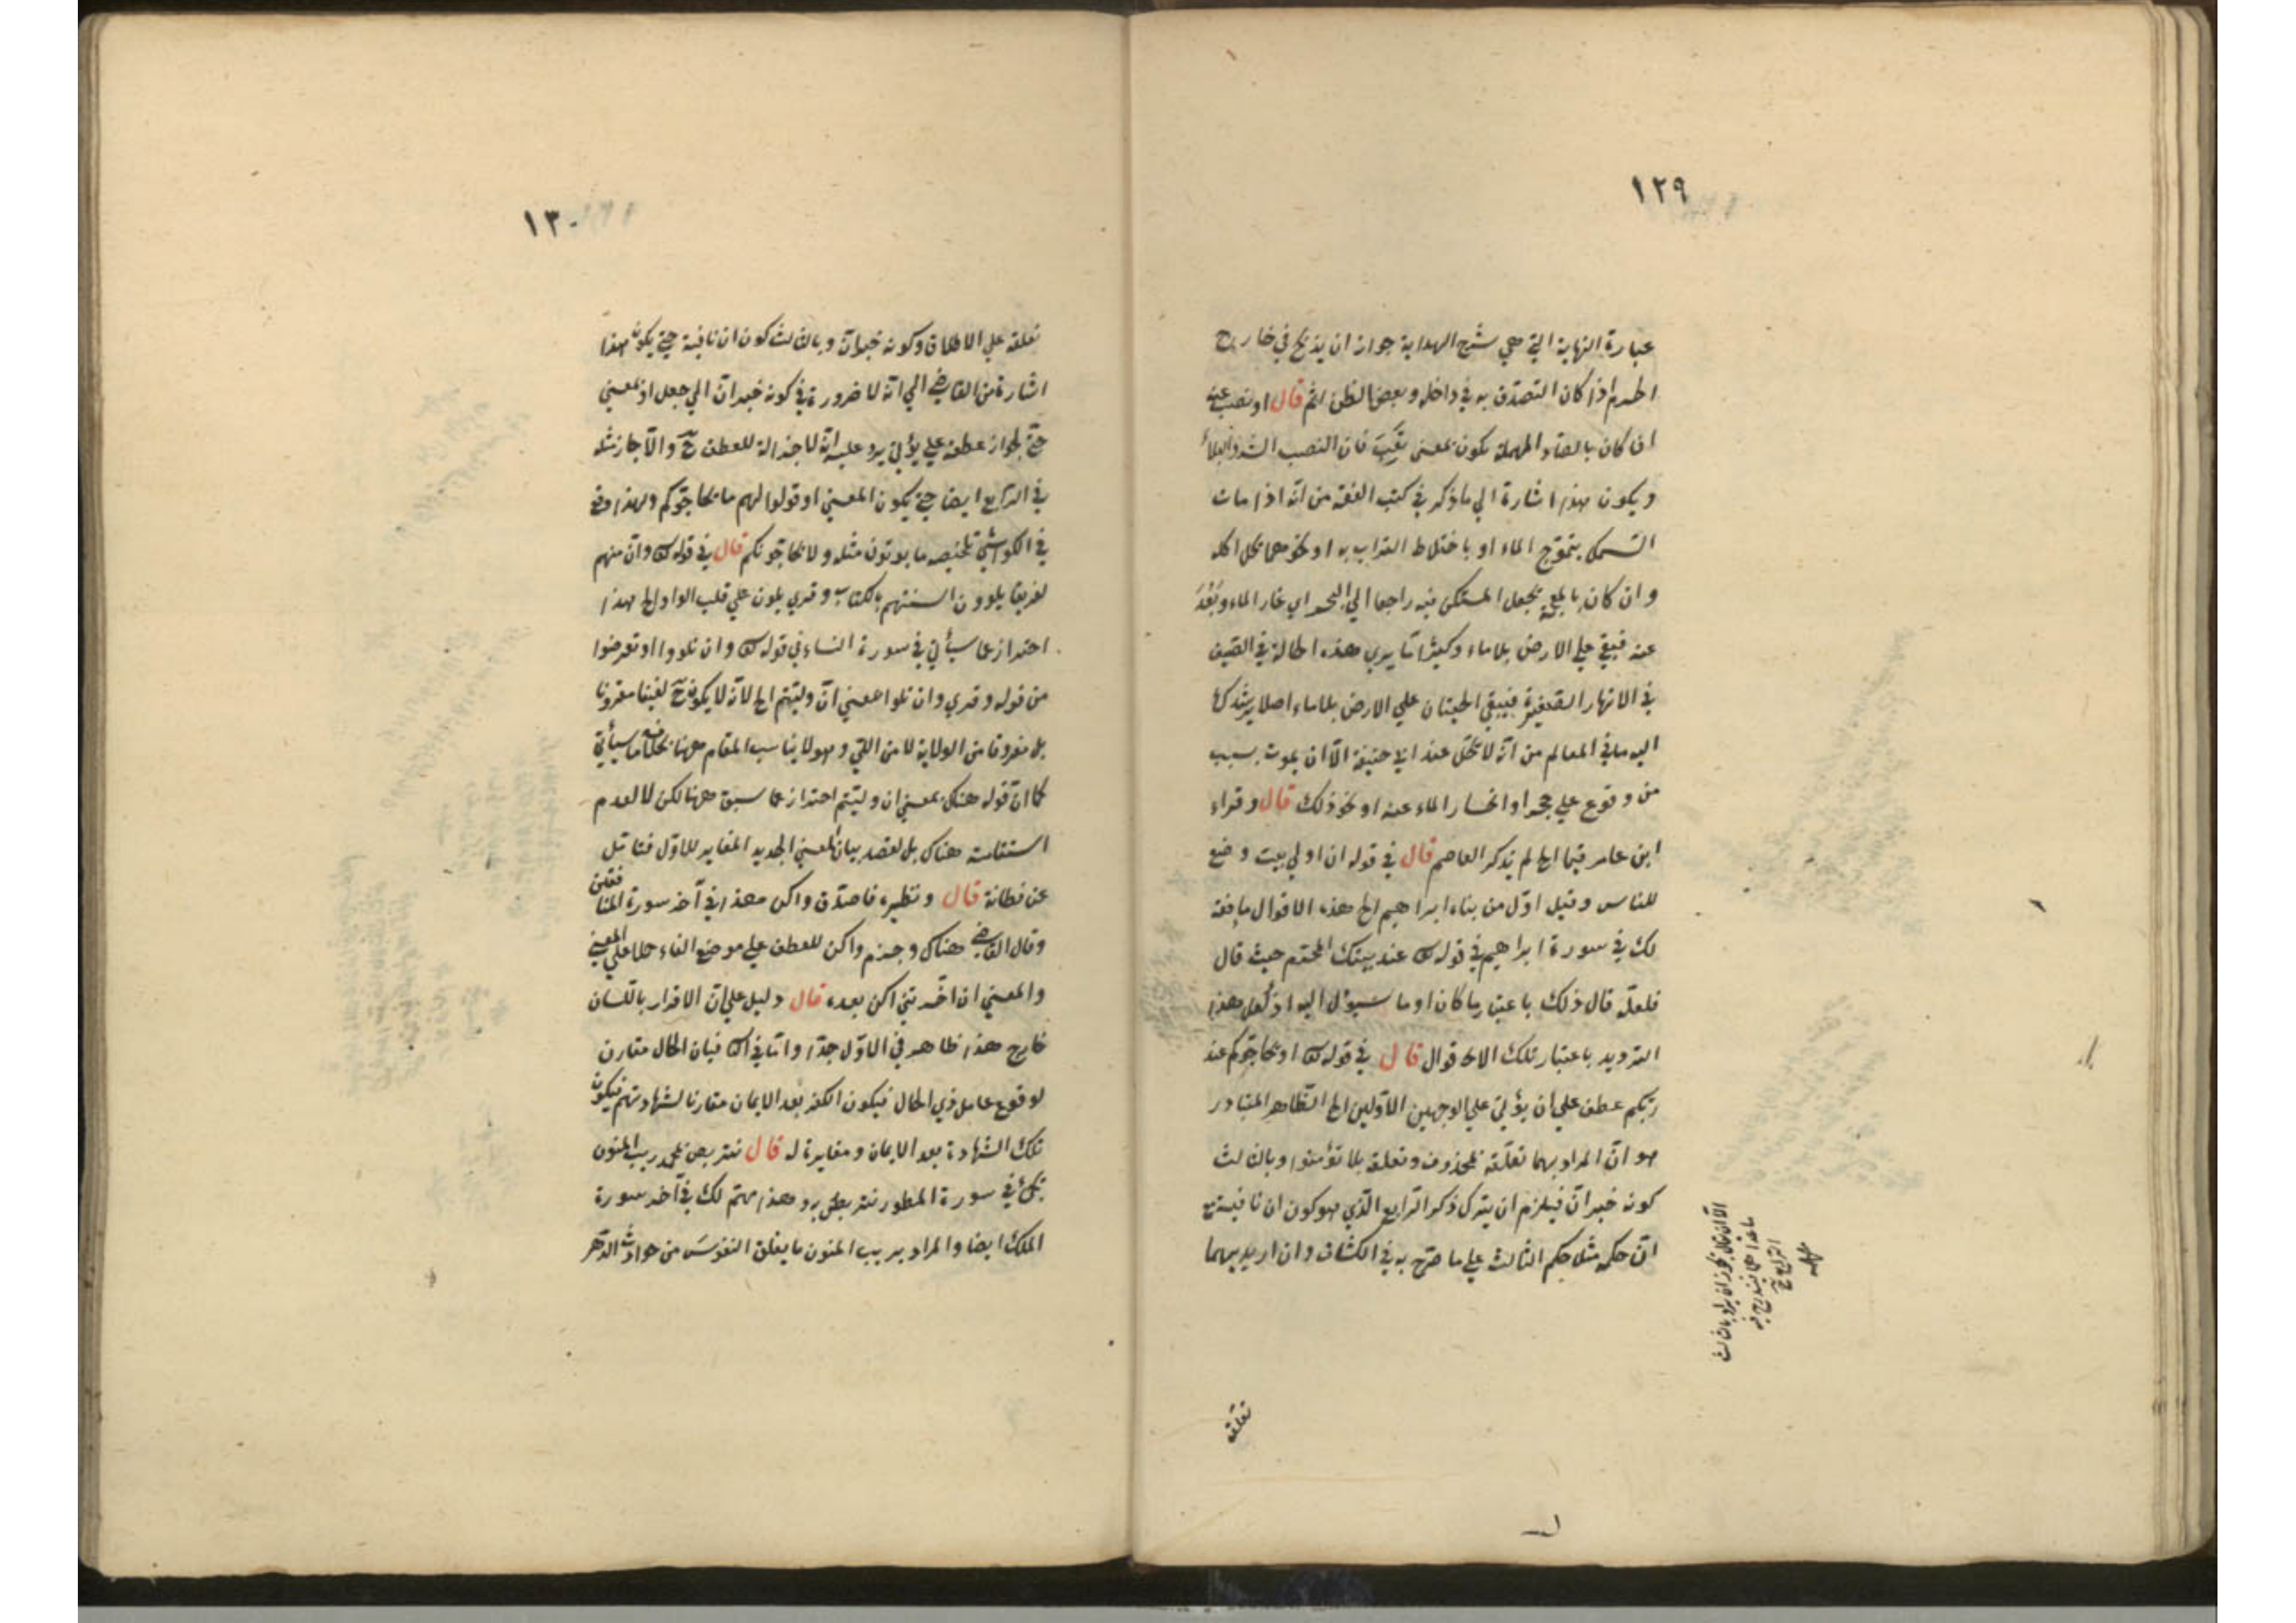 ١٢٩
عبارة النهاية التي هي شرح الهداية جواز ان يذبح في خارج
الحرم اذا كان التصدق به في داخله وبعض الظن اثم قال او نصب عنه
ان كان بالصاد المهملة يكون بمعنى تعب فان النصب الشر والبلاء
ويكون هذا اشارة الي ما ذكر في كتب الفقه من انه اذا مات
السمك بتموج الماء او باختلاط التراب به او نحوهما يحل اكله
وان كان بالمعجمة يجعل المستكن فيه راجعا الي البحر اي غار الماء وبعد
عنه فبقي علي الارض بلا ماء وكثيرا ما يري هذه الحالة في الصيف
في الانهار الصغيرة فيبقي الحيتان علي الارض بلا ماء اصلا يرشدك
اليه ما في المعالم من انه لا يحل عند ابي حنيفة الا ان يموت بسبب
من وقوع علي حجر او انحسار الماء عنه او نحو ذلك قال وقراء
ابن عامر قيما الخ لم يذكر العاصم قال في قوله ان اول بيت وضع
للناس وقيل اول من بناه ابراهيم الخ هذه الاقوال
لك في سورة ابراهيم في قوله تعالى عند بيتك المحرم حيث قال
فلعله قال ذلك باعتبار ما كان او ما سيؤل اليه اذ لعل هذا
الترديد باعتبار تلك الاقوال قال في قوله تعالى او يحاجوكم عند
ربكم عطف علي ان يؤتي علي الوجهين الاولين الخ الظاهر المتبادر
هو ان المراد بهما تعلقه بمحذوف وتعلقه بلا تؤمنوا وبالثالث
كونه خبر ان فيلزم ان يترك ذكر الرابع الذي هو كون ان نافية مع
ان حكمه مثل حكم الثالث علي ما صرح به في الكشاف وان اريد بهما
الا ان يقال يجوز ان يراد بالثالث
الرابع
تعلقه
١٣٠
تعلقه علي الاطلاق وكونه خبر ان وبالثالث كون ان نافية حتي يكون هذا
اشارة من القاضي الي انه لا ضرورة في كونه خبر ان الي جعل او بمعني
حتي لجواز عطفه علي يؤتي يرد عليه انه لا جزالة للعطف ح والا جاز مثله
في الرابع ايضا حتي يكون المعني او قولوا لهم ما يحاجوكم ولهذا وقع
في الكواشي تلخيصه ما يوتون مثله ولا يحاجونكم قال في قوله تعالى وان منهم
لفريقا يلوون السنتهم بالكتاب وقري يلون علي قلب الواو الخ هذا
احتراز عما سيأتي في سورة النساء في قوله تعالى وان تلووا او تعرضوا
من قوله وقري وان تلوا بمعني ان وليتم الخ لانه لا يكون ح لفيفا مقرونا
بل مفروقا من الولاية لا من اللي وهو لا يناسب المقام ههنا بخلاف ما سيأتي
كما ان قوله هناك بمعني ان وليتم احتراز عما سبق ههنا لكن لا لعدم
استقامته هناك بل لقصد بيان المعني الجديد المغاير للاول فتأمل
عن فطانة قال ونظيره فاصدق واكن هذا في آخر سورة المنافقين
وقال القاضي هناك وجزم واكن للعطف علي موضع الفاء حملا علي المعني
والمعني ان اخرتني اكن بعده قال دليل علي ان الاقرار باللسان
خارج هذا ظاهر في الاول جدا واما في الثاني فبان الحال مقارن
لوقوع عامل ذي الحال فيكون الكفر بعد الايمان مقارنا لشهادتهم فيكون
تلك الشهادة بعد الايمان ومغايرة له قال نتربص بمحمد ريب المنون
في سورة الطور نتربص به وهذا مهتم لك في آخر سورة
الملك ايضا والمراد بريب المنون ما يقلق النفوس من حوادث الدهر